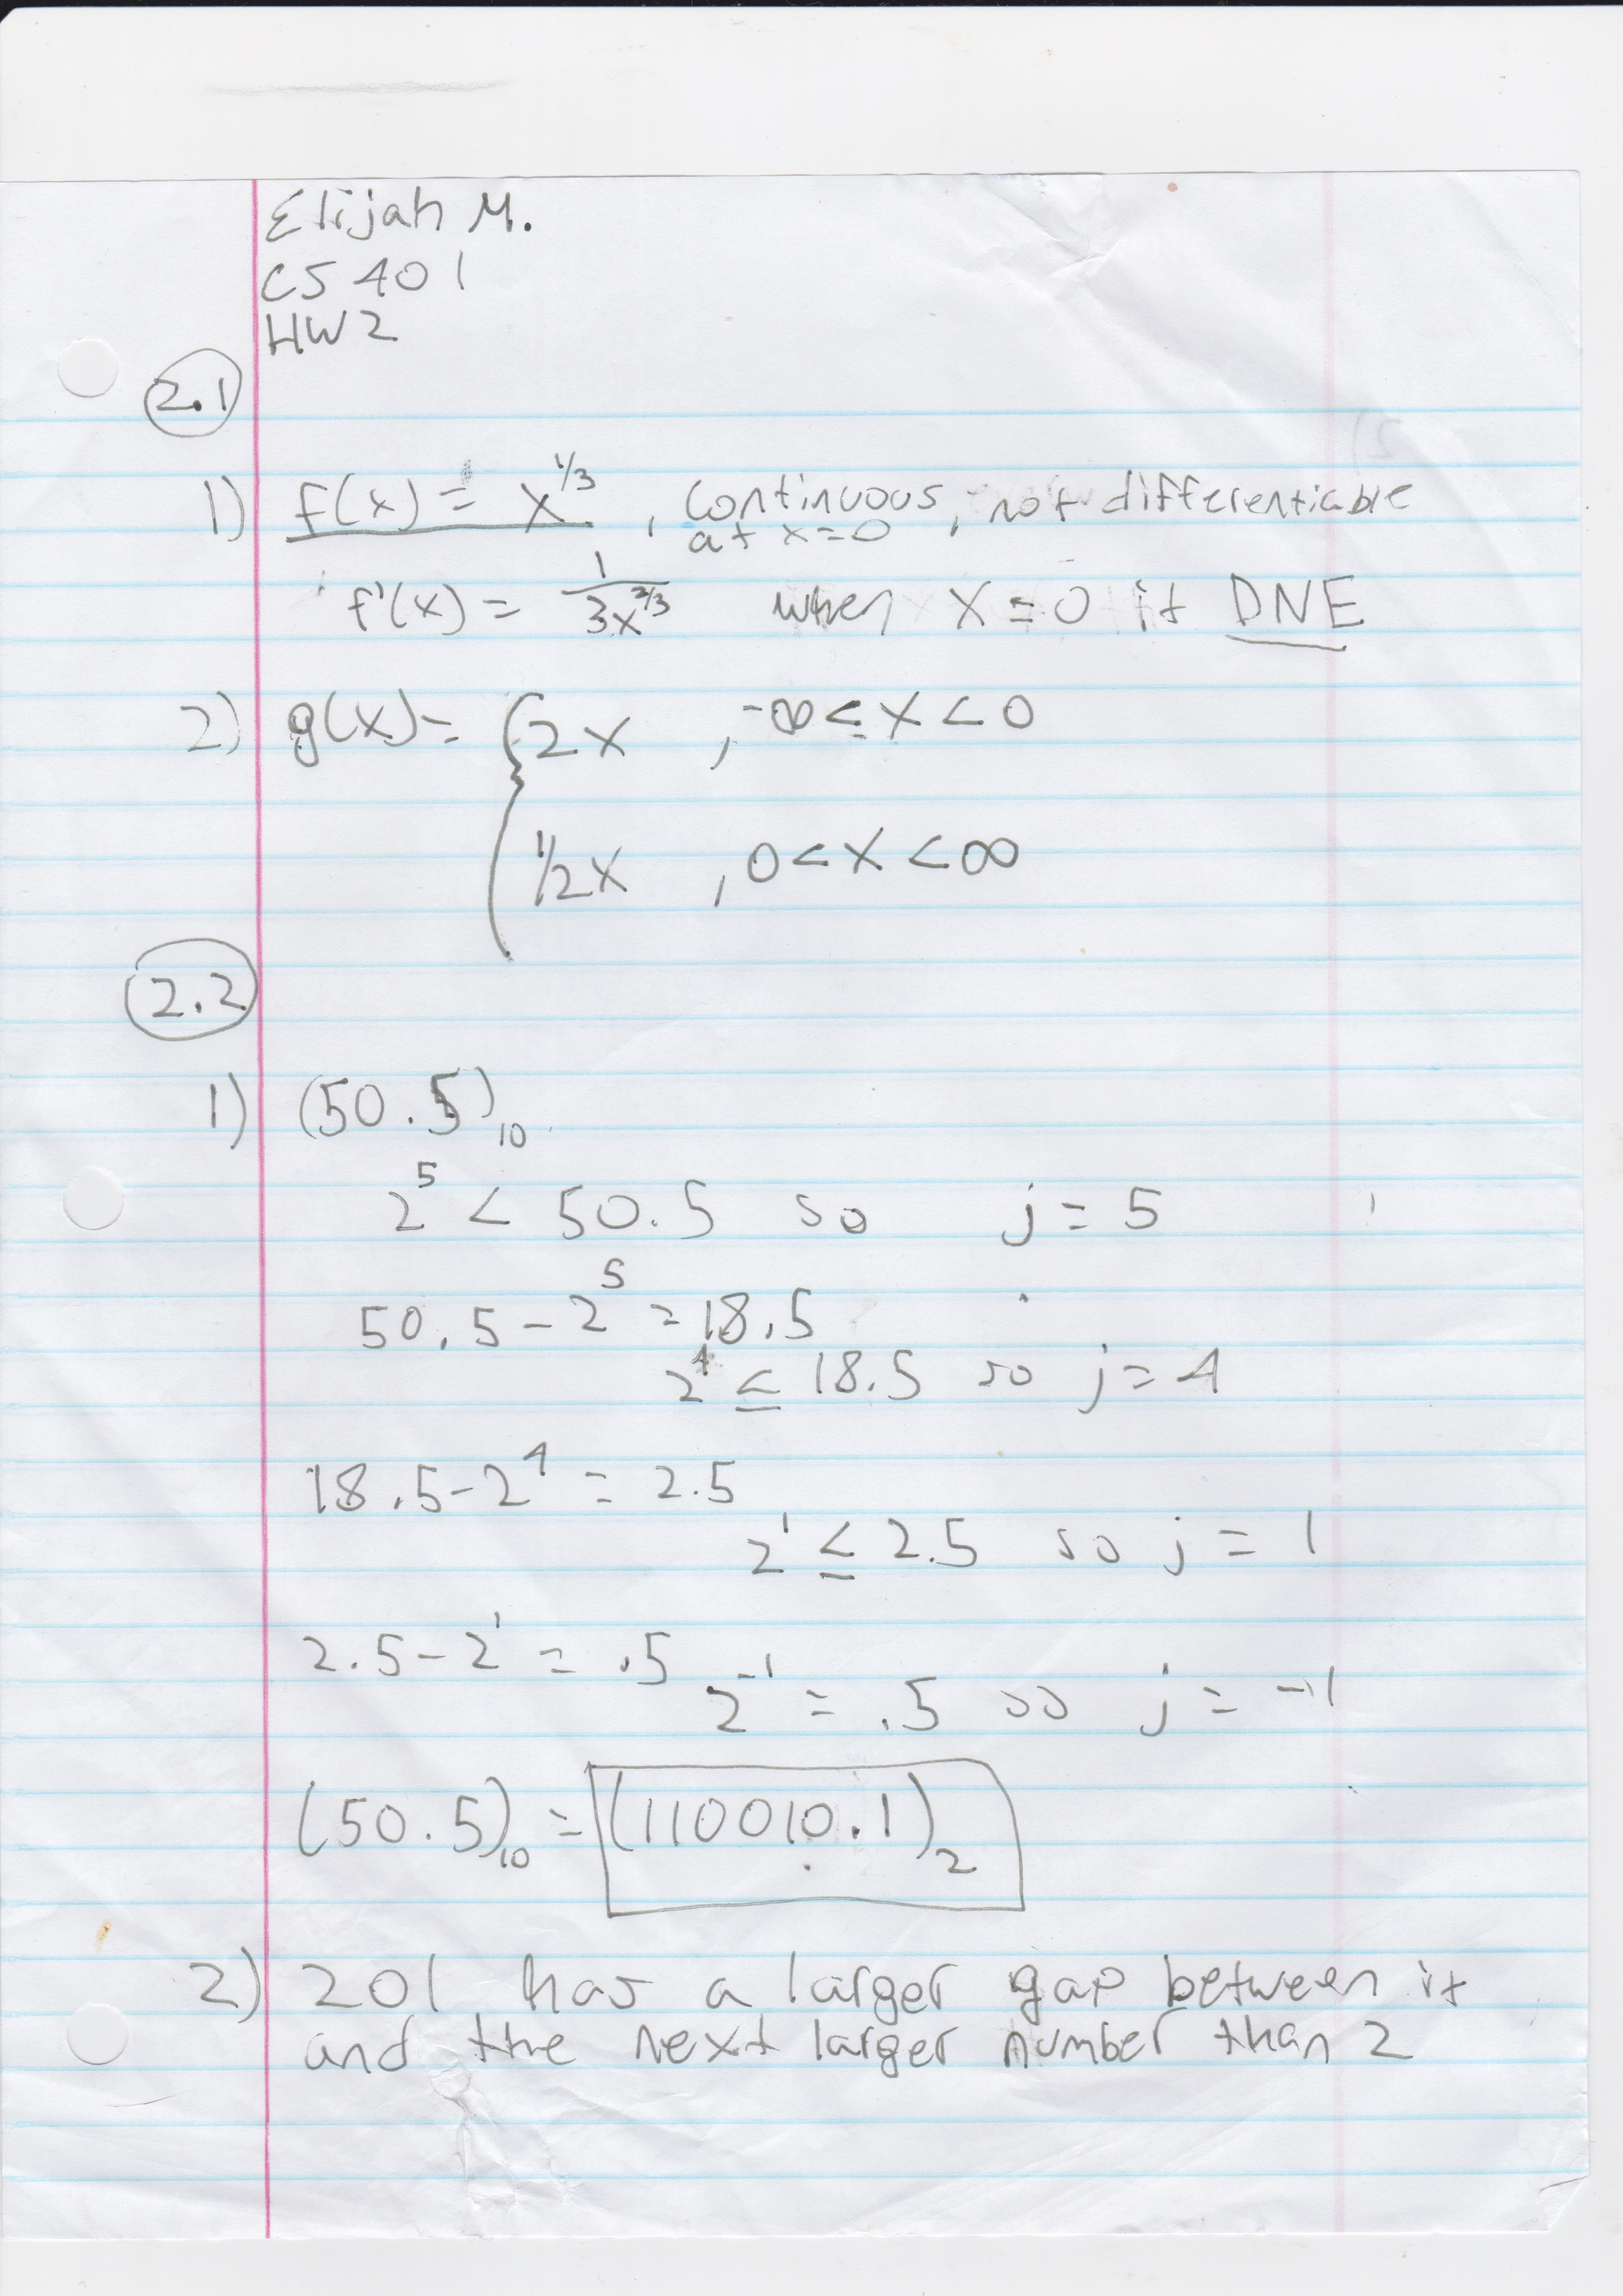 Elijah M.
CS 401
HW2
2.1
1) f(x) = x^1/3, continuous, not differentiable
at x=0
f'(x) = 1/3x^2/3 when x=0 it DNE
2) g(x)= { 2x , -∞≤x<0
1/2x , 0<x<∞
2.2
1) (50.5)10
2^5 < 50.5 so j = 5
50.5-2^5 = 18.5
2^4 ≤ 18.5 so j=4
18.5-2^4 = 2.5
2^1 ≤ 2.5 so j = 1
2.5-2^1 = .5
2^-1 = .5 so j = -1
(50.5)10 = (110010.1)2
2) 201 has a larger gap between it
and the next larger number than 2